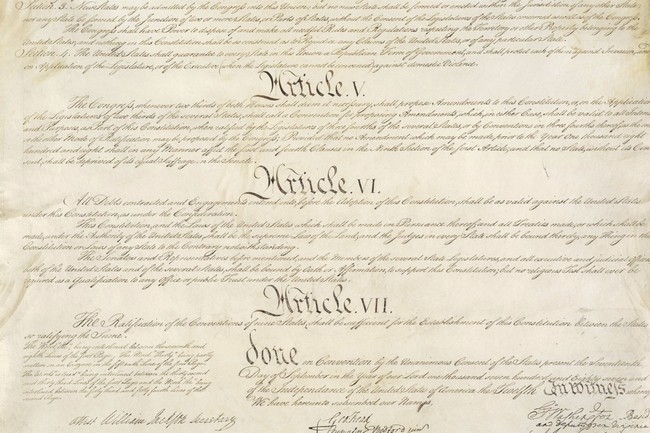 Section 3. New States may be admitted by the Congress into this Union; but no new State shall be formed or erected within the Jurisdiction of any other State;
nor any State be formed by the Junction of two or more States, or Parts of States, without the Consent of the Legislatures of the States concerned as well as of the Congress.
The Congress shall have Power to dispose of and make all needful Rules and Regulations respecting the Territory or other Property belonging to the
United States; and nothing in this Constitution shall be so construed as to Prejudice any Claims of the United States, or of any particular State.
Section 4. The United States shall guarantee to every State in this Union a Republican Form of Government, and shall protect each of them against Invasion; and
on Application of the Legislature, or of the Executive (when the Legislature cannot be convened) against domestic Violence.
Article. V.
The Congress, whenever two thirds of both Houses shall deem it necessary, shall propose Amendments to this Constitution, or, on the Application
of the Legislatures of two thirds of the several States, shall call a Convention for proposing Amendments, which, in either Case, shall be valid to all Intents
and Purposes, as Part of this Constitution, when ratified by the Legislatures of three fourths of the several States, or by Conventions in three fourths thereof, as the
other Mode of Ratification may be proposed by the Congress; Provided that no Amendment which may be made prior to the Year One thousand eight
hundred and eight shall in any Manner affect the first and fourth Clauses in the Ninth Section of the first Article; and that no State, without its Con-
sent, shall be deprived of its equal Suffrage in the Senate.
Article. VI.
All Debts contracted and Engagements entered into, before the Adoption of this Constitution, shall be as valid against the United States
under this Constitution, as under the Confederation.
This Constitution, and the Laws of the United States which shall be made in Pursuance thereof; and all Treaties made, or which shall be
made, under the Authority of the United States, shall be the supreme Law of the Land; and the Judges in every State shall be bound thereby, any Thing in the
Constitution or Laws of any State to the Contrary notwithstanding.
The Senators and Representatives before mentioned, and the Members of the several State Legislatures, and all executive and judicial Officers,
both of the United States and of the several States, shall be bound by Oath or Affirmation, to support this Constitution; but no religious Test shall ever be
required as a Qualification to any Office or public Trust under the United States.
Article. VII.
The Ratification of the Conventions of nine States, shall be sufficient for the Establishment of this Constitution between the States
so ratifying the Same.
done in Convention by the Unanimous Consent of the States present the Seventeenth
Day of September in the Year of our Lord one thousand seven hundred and Eighty seven and
of the Independance of the United States of America the Twelfth In Witness
We have hereunto subscribed our Names,
Attest William Jackson Secretary
Geo Read
Go Washington
and deputy from Virginia